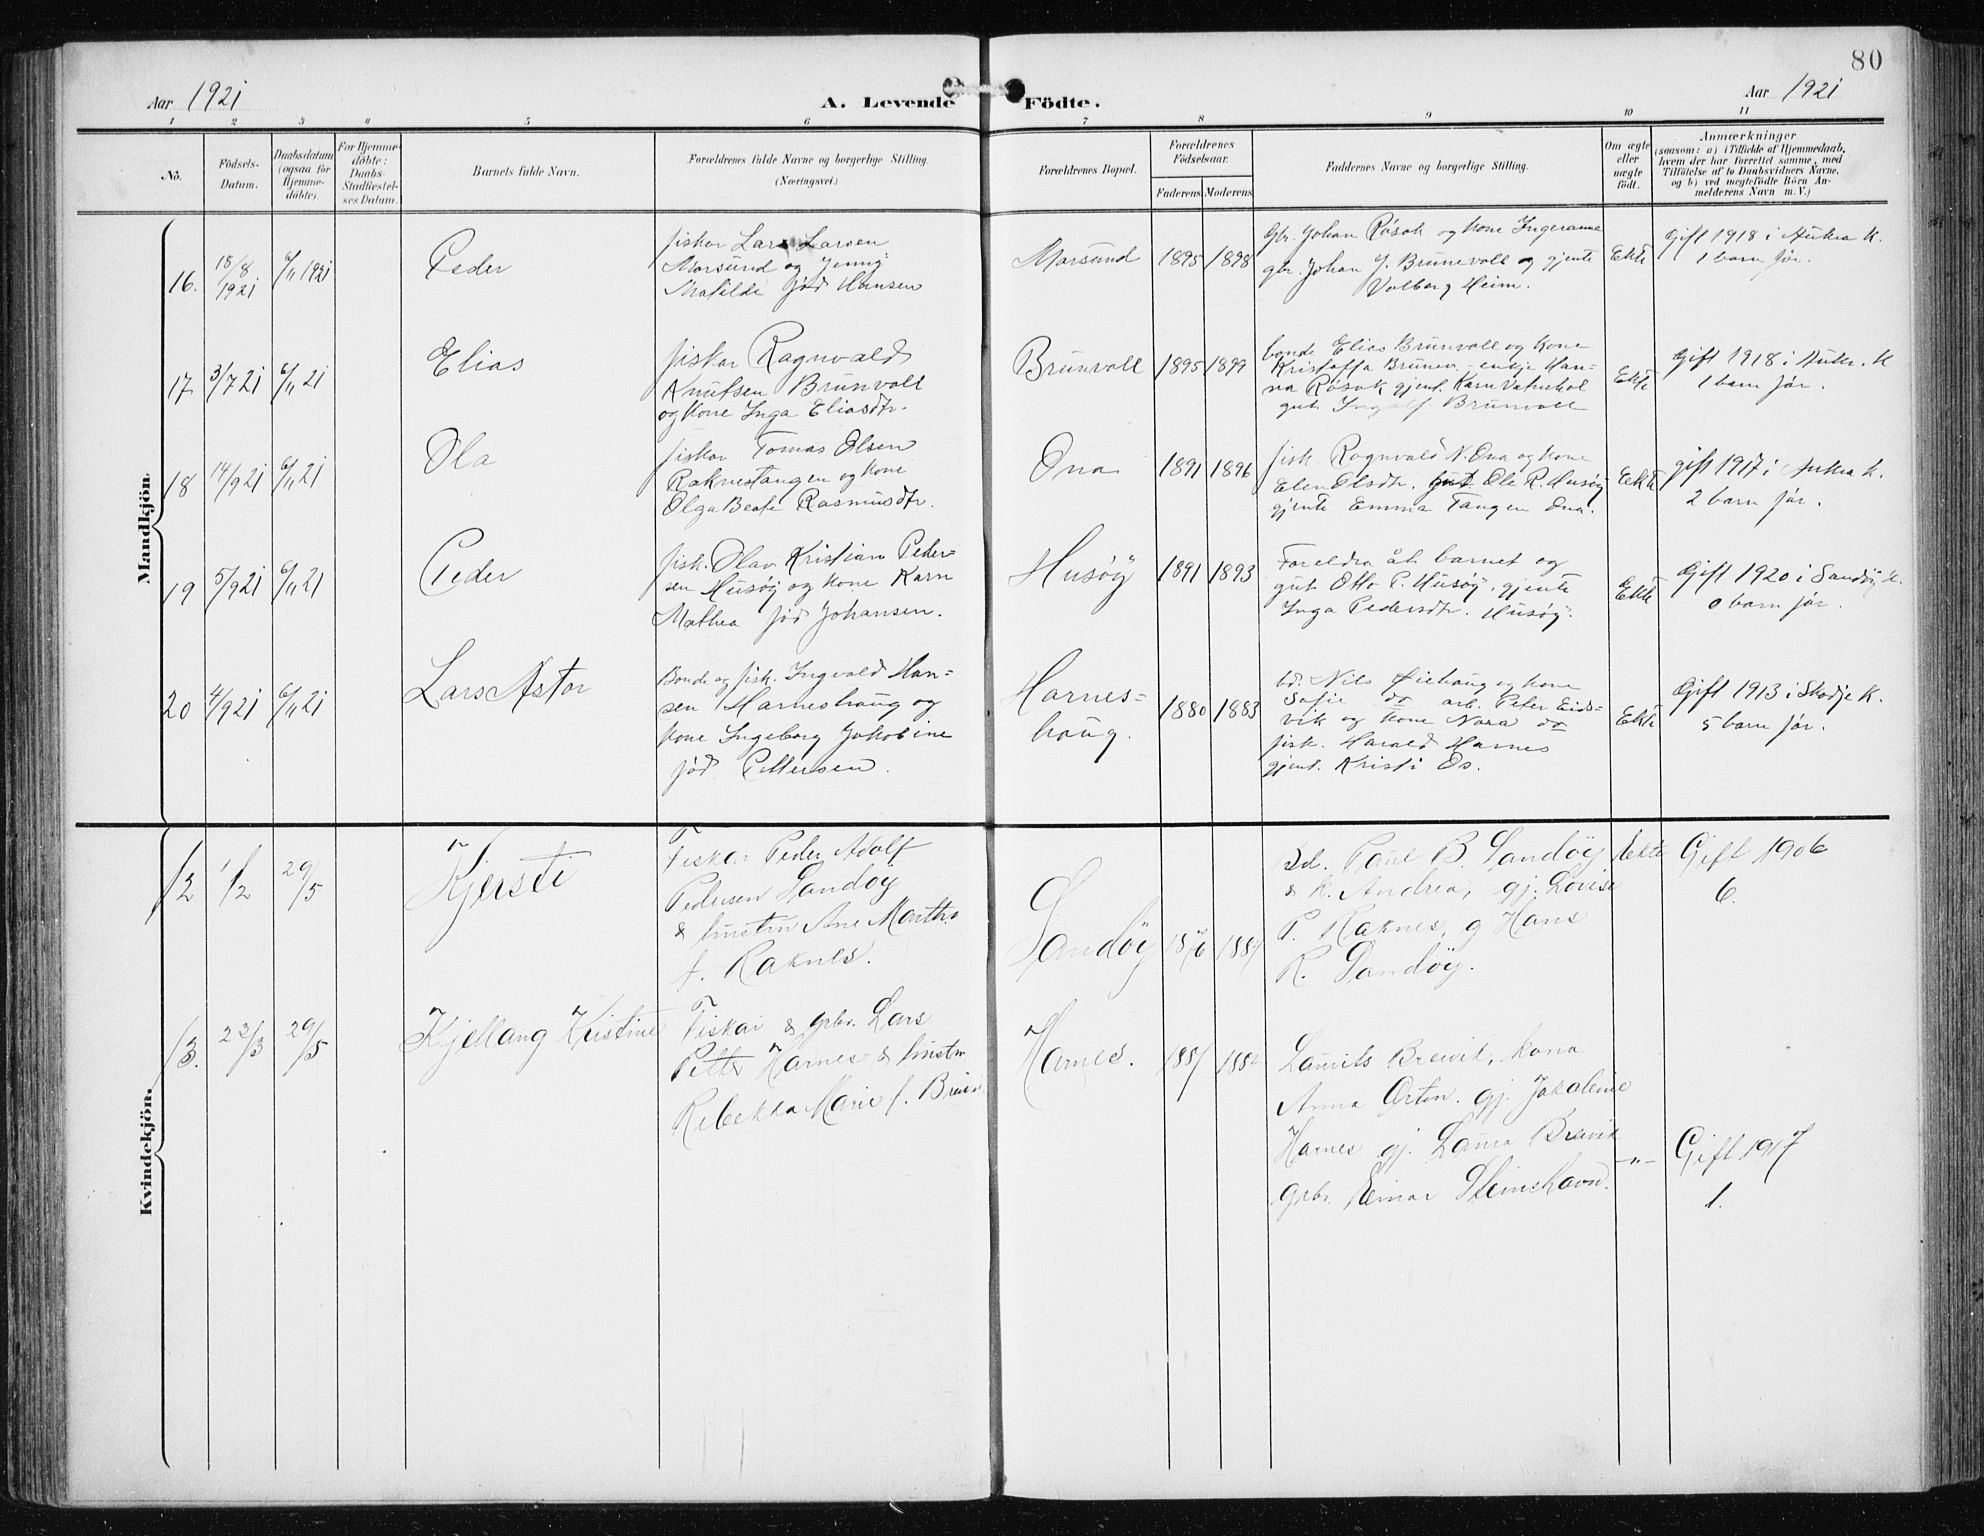 80
Aar 1921
A. Levende Födte.
Aar 1921
1 2 3 4 5 6 7 8 9 10 11
No.
Födsels-
Datum.
Daabsdatum
(ogsaa for
Hjemme-
döbte).
For Hjemme-
döbte:
Daabs-
Stadfæstel-
ses Datum.
Barnets fulde Navn.
Forældrenes fulde Navne og borgerlige Stilling.
(Næringsvei.)
Forældrenes Bopæl.
Forældrenes
Födselsaar.
Faderens Moderens
Faddernes Navne og borgerlige Stilling.
Om ægte
eller
uægte
födt.
Anmærkninger
(saasom: a) i Tilfælde af Hjemmedaab,
hvem der har forrettet samme, med
Tilföielse af to Daabsvidners Navne,
og b) ved uægtefödte Börn An-
melderens Navn m. V.)
Mandkjön.
16.
18/8
1921
6/11 1921
Peder
fiskar Lars Larsen
Morsund og Jenny
Matilde fød Hansen
Morsund
1895 1898
Gbr. Johan Røsok og kone Ingeranna
gbr. Johan J. Brunevoll og gjente
Valborg Heim.
Ekte
Gift 1918 i Aukra K.
1 barn før.
17
3/7 21
6/11 21
Elias
fiskar Ragnvald
Knutsen Brunvoll
og kone Inga Eliasdtr.
Brunvoll
1895 1899
bonde Elias Brunvoll og kone
Kristoffa Brunev. enkje Han-
na Røsok gjent. Karn Vatnehol
gut Ingolf Brunvoll
Ekte
Gift 1918 i Aukr. K
1 barn før.
18
14/9 21
6/11 21
Ola
fiskar Tomas Olsen
Raknestangen og kone
Olga Beate Rasmusdtr.
Ona
1891 1896
fisk. Ragnvald N. Ona og kone
Elen Olsdtr. gut Ole R. Husøy
gjente Emma Tangen Ona.
Ekte
gift 1917 i Aukra K.
2 barn før.
19
5/9 21
6/11 21
Peder
fisk. Olav Kristian Peder-
sen Husøy og kone Karn
Mathea fød Johansen.
Husøy
1891 1893
Foreldra åt barnet og
gut Otto P. Husøy, gjente
Inga Pedersdtr. Husøy.
Ekte
Gift 1920 i Sandøy K.
0 barn før.
20
4/9 21
6/11 21
Lars Astor
Bonde og fisk. Ingvald Han-
sen Harneshaug og
kone Ingeborg Jakobine
fød Pettersen.
Harnes-
haug.
1880 1883
bd. Nils Øiehaug og kone
Sofie do arb. Peter Eids-
vik og kone Nora do
fisk. Harald Harnes
gjent. Kristi Os.
Ekte
Gift 1913 i Skodje K.
5 barn før.
Kvindekjön.
12
1/2
29/5
Kjersti
Fiskar Peder Adolf
Pedersen Sandøy
& hustru Ane Martha
f. Raknes.
Sandøy
1876
Bd. Paul B. Sandøy
& k. Andrea, gj. Lovise
P. Raknes, g Hans
R. Sandøy.
ekte
Gift 1906
6.
13.
22/3
29/5
Kjellaug Kristine
Fiskar & grbr. Lars
Petter Harnes & hustru
Rebekka Marie f. Breivik
Harnes.
Laurits Breivik, kona
Anna Orten. gj. Jakobine
Harnes gj. Laura Breivik
grbr. Einar Steinshavn.
-"-
Gift 1917
1.